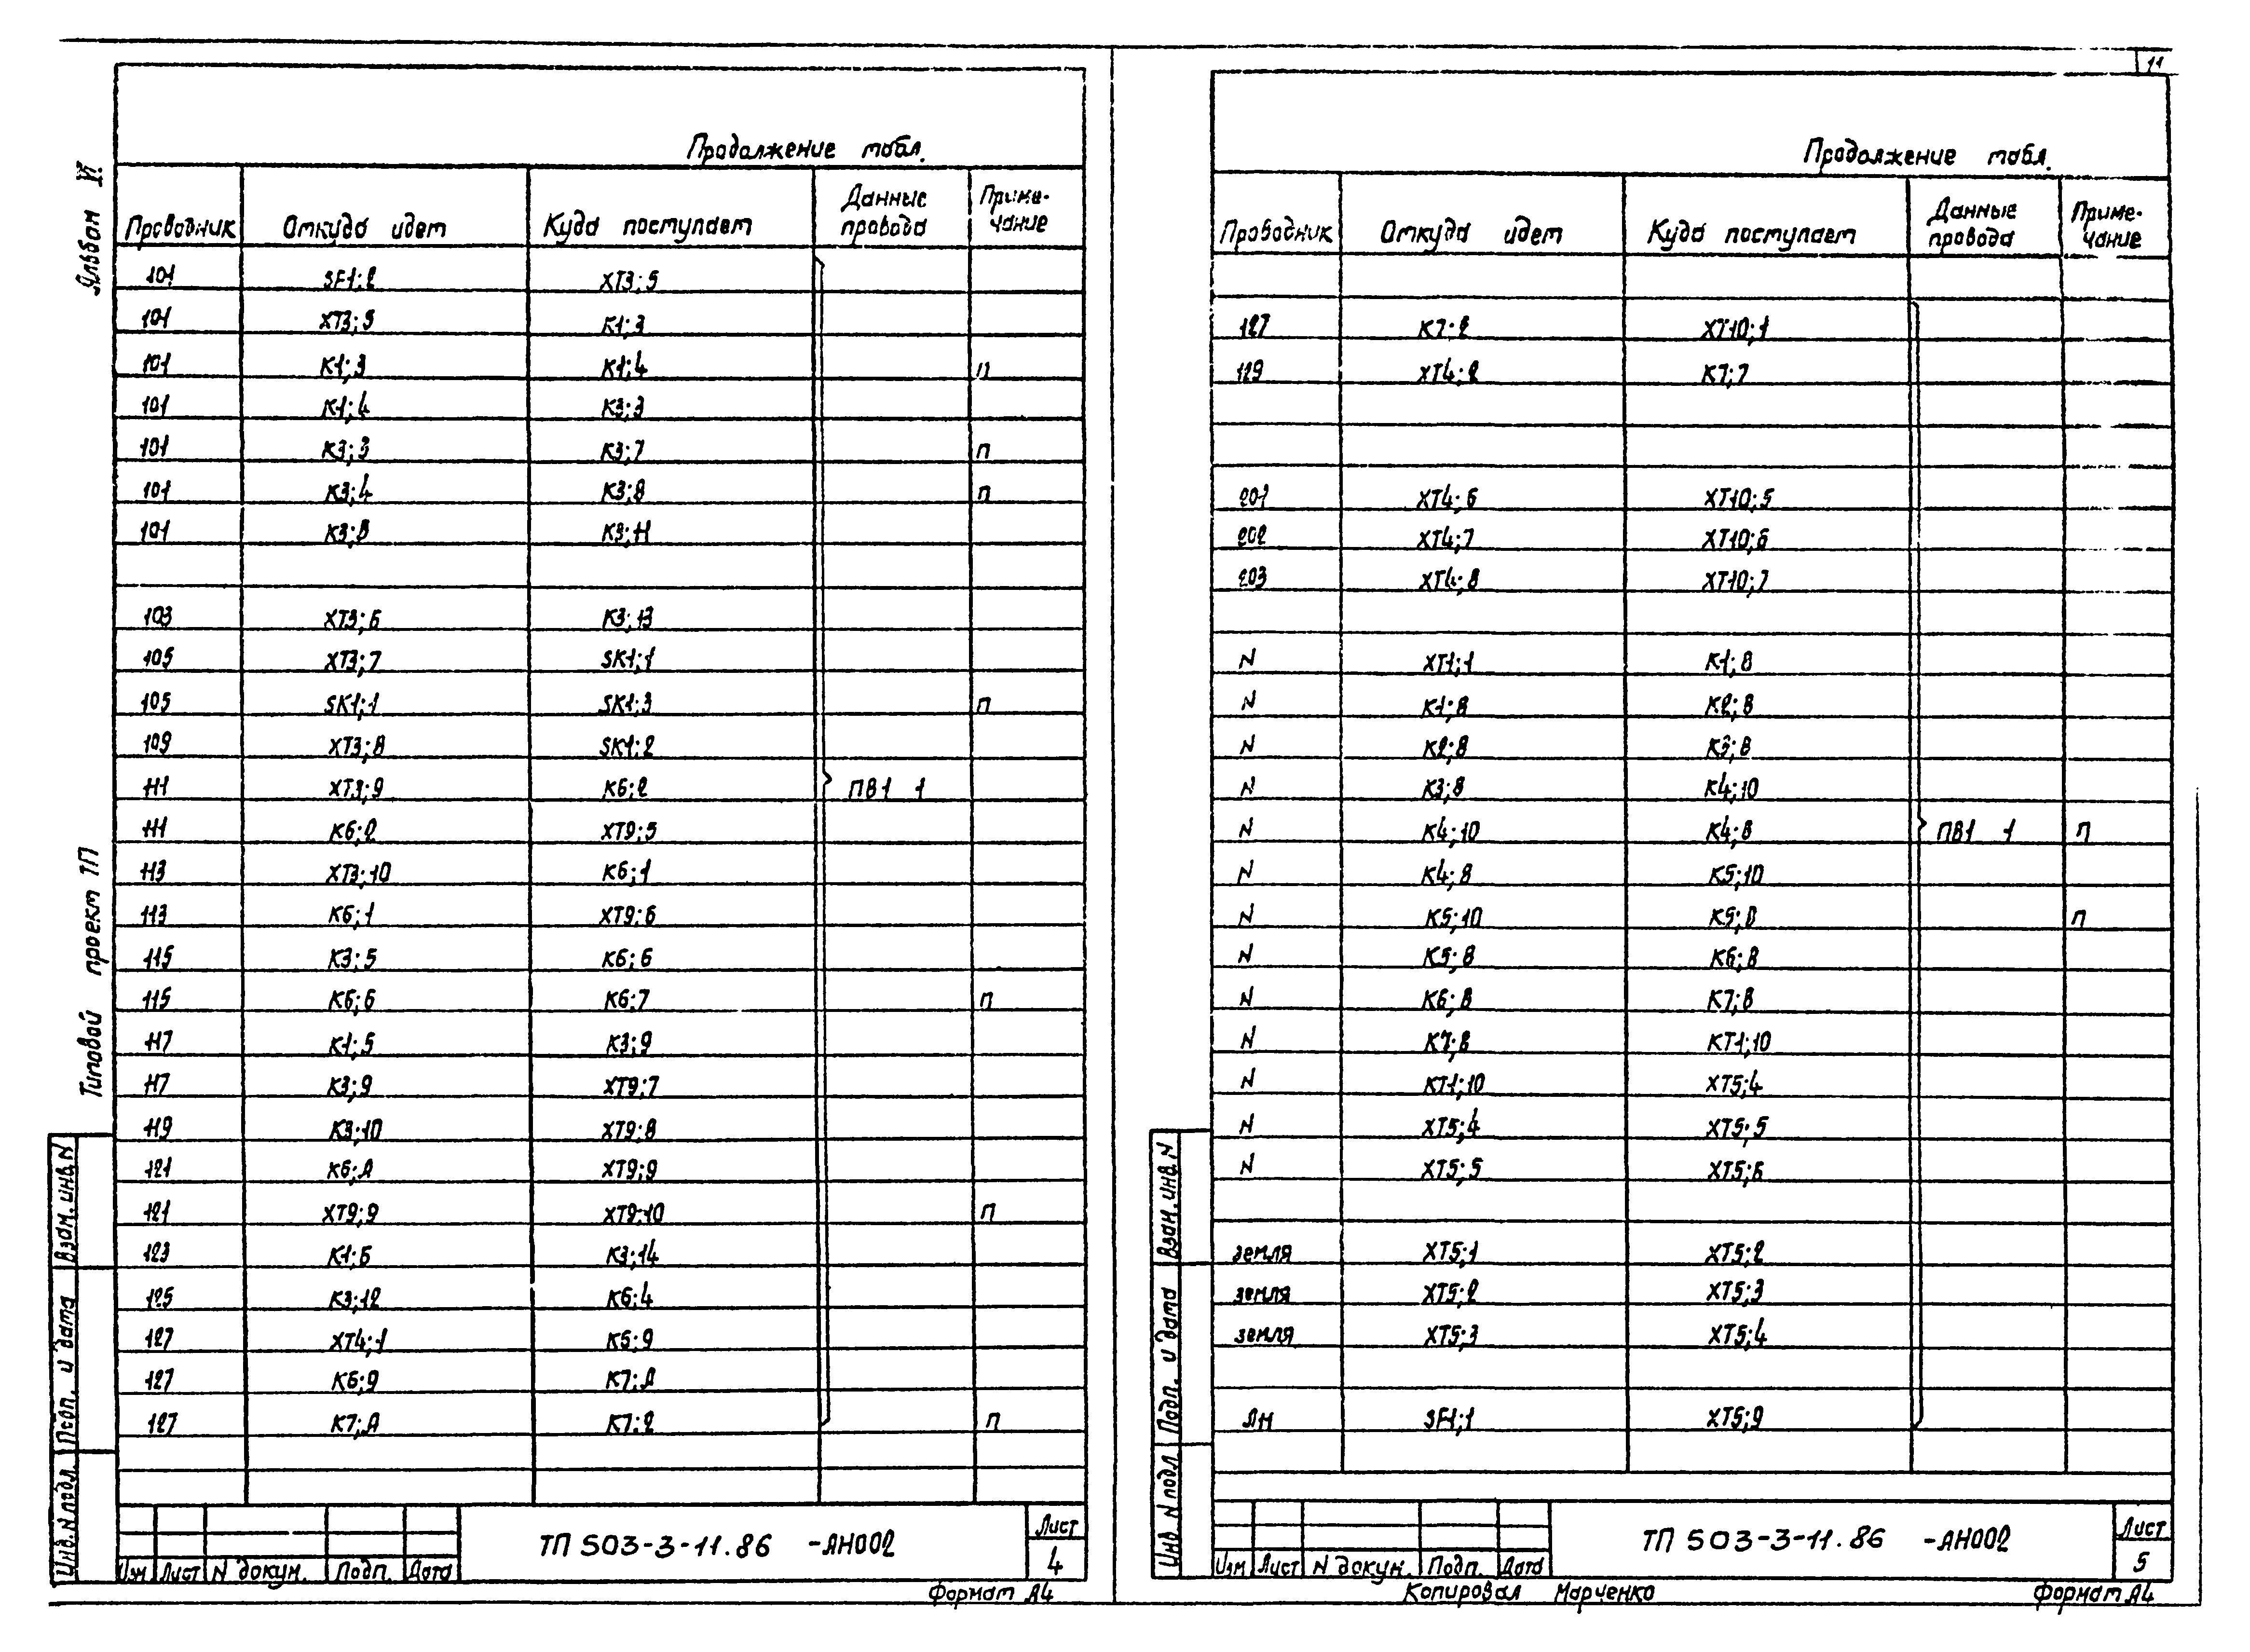 11
Альбом VI
Типовой проект ТП
Продолжение табл.
Проводник Откуда идет Куда поступает Данные провода Примечание
101 SF1;2 XT3;5
101 XT3;5 K1;3
101 K1;3 K1;4 П
101 K1;4 K3;3
101 K3;3 K3;7 П
101 K3;4 K3;8 П
101 K3;8 K3;11
103 XT3;6 K3;13
105 XT3;7 SK1;1
105 SK1;1 SK1;3 П
109 XT3;8 SK1;2
111 XT3;9 K6;2 ПВ1 1
111 K6;2 XT9;5
113 XT3;10 K6;1
113 K6;1 XT9;6
115 K3;5 K6;6
115 K6;6 K6;7 П
117 K1;5 K3;9
117 K3;9 XT9;7
119 K3;10 XT9;8
121 K6;A XT9;9
121 XT9;9 XT9;10 П
123 K1;6 K3;14
125 K3;12 K6;4
127 XT4;1 K6;9
127 K6;9 K7;A
127 K7;A K7;2 П
Взам. инв. N
Подп. и дата
Инв. N подл.
Изм Лист N докум. Подп. Дата
ТП 503-3-11.86 -АН002
Лист
4
Формат А4
Продолжение табл.
Проводник Откуда идет Куда поступает Данные провода Примечание
127 K7;2 XT10;1
129 XT4;2 K7;7
201 XT4;6 XT10;5
202 XT4;7 XT10;6
203 XT4;8 XT10;7
N XT1;1 K1;8
N K1;8 K2;8
N K2;8 K3;8
N K3;8 K4;10
N K4;10 K4;8 ПВ1 1 П
N K4;8 K5;10
N K5;10 K5;8 П
N K5;8 K6;8
N K6;8 K7;8
N K7;8 KT1;10
N KT1;10 XT5;4
N XT5;4 XT5;5
N XT5;5 XT5;6
земля XT5;1 XT5;2
земля XT5;2 XT5;3
земля XT5;3 XT5;4
ЛН SF1;1 XT5;9
Взам. инв. N
Подп. и дата
Инв. N подл
Изм Лист N докум. Подп. Дата
ТП 503-3-11.86 -АН002
Лист
5
Копировал Марченко
Формат А4